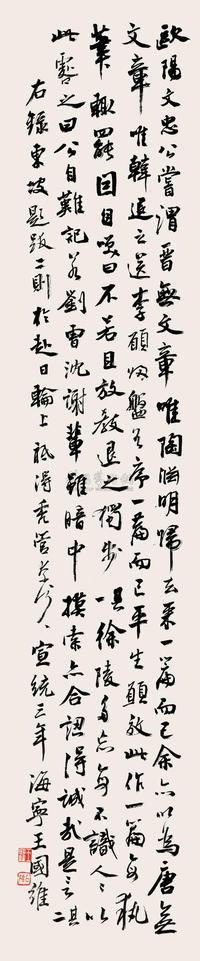 歐陽文忠公嘗謂晋無文章唯陶淵明歸去來一篇而已余亦以為唐無
文章唯韓退之送李愿歸盤谷序一篇而已平生願效此作一篇每執
筆輒罷因自笑曰不若且放教退之獨步 其一 徐陵多忘每不識人〻以
此咎之曰公自難記若劉曹沈謝輩雖暗中摸索亦合認得誠哉是言 其二
右錄東坡題跋二則於赴日輪上祇得禿管 宣統三年 海寧王國維